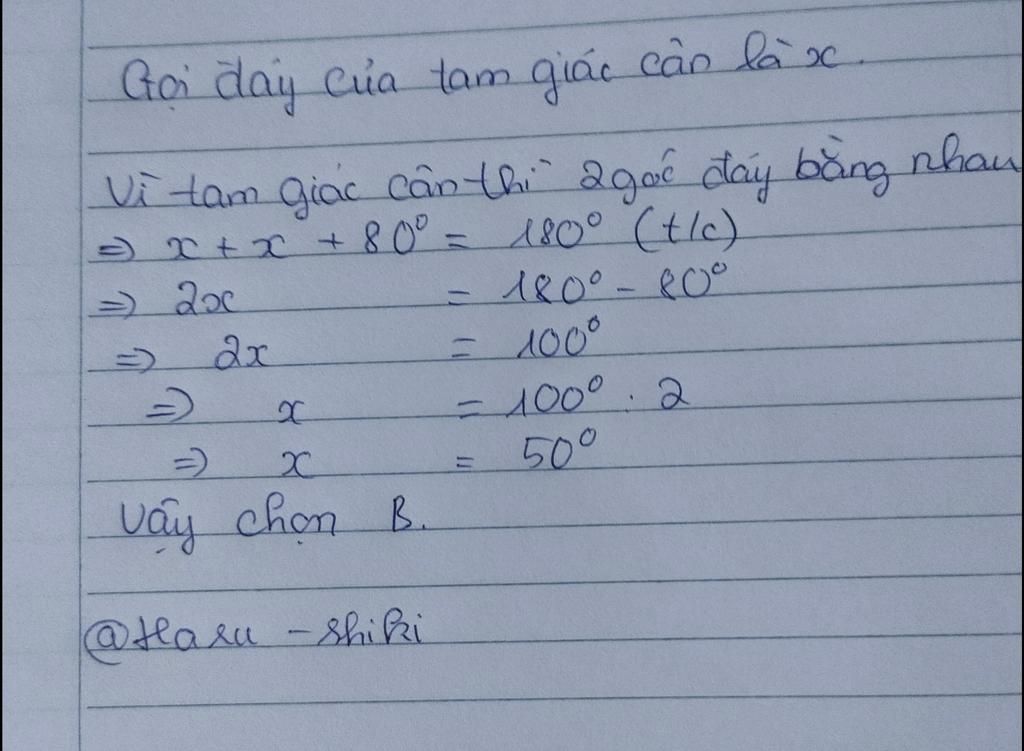 Gọi đáy của tam giác cân là x.
Vì tam giác cân thì 2 góc đáy bằng nhau
=> x + x + 80° = 180° (t/c)
=> 2x = 180° - 80°
=> 2x = 100°
=> x = 100° : 2
=> x = 50°
Vậy chọn B.
@Haru - shiki